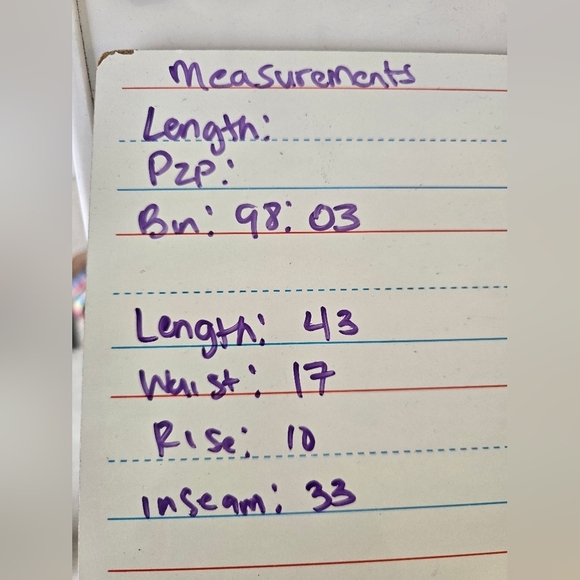 Measurements
Length:
P2P:
Bin: 98: 03
Length: 43
Waist: 17
Rise: 10
inseam: 33